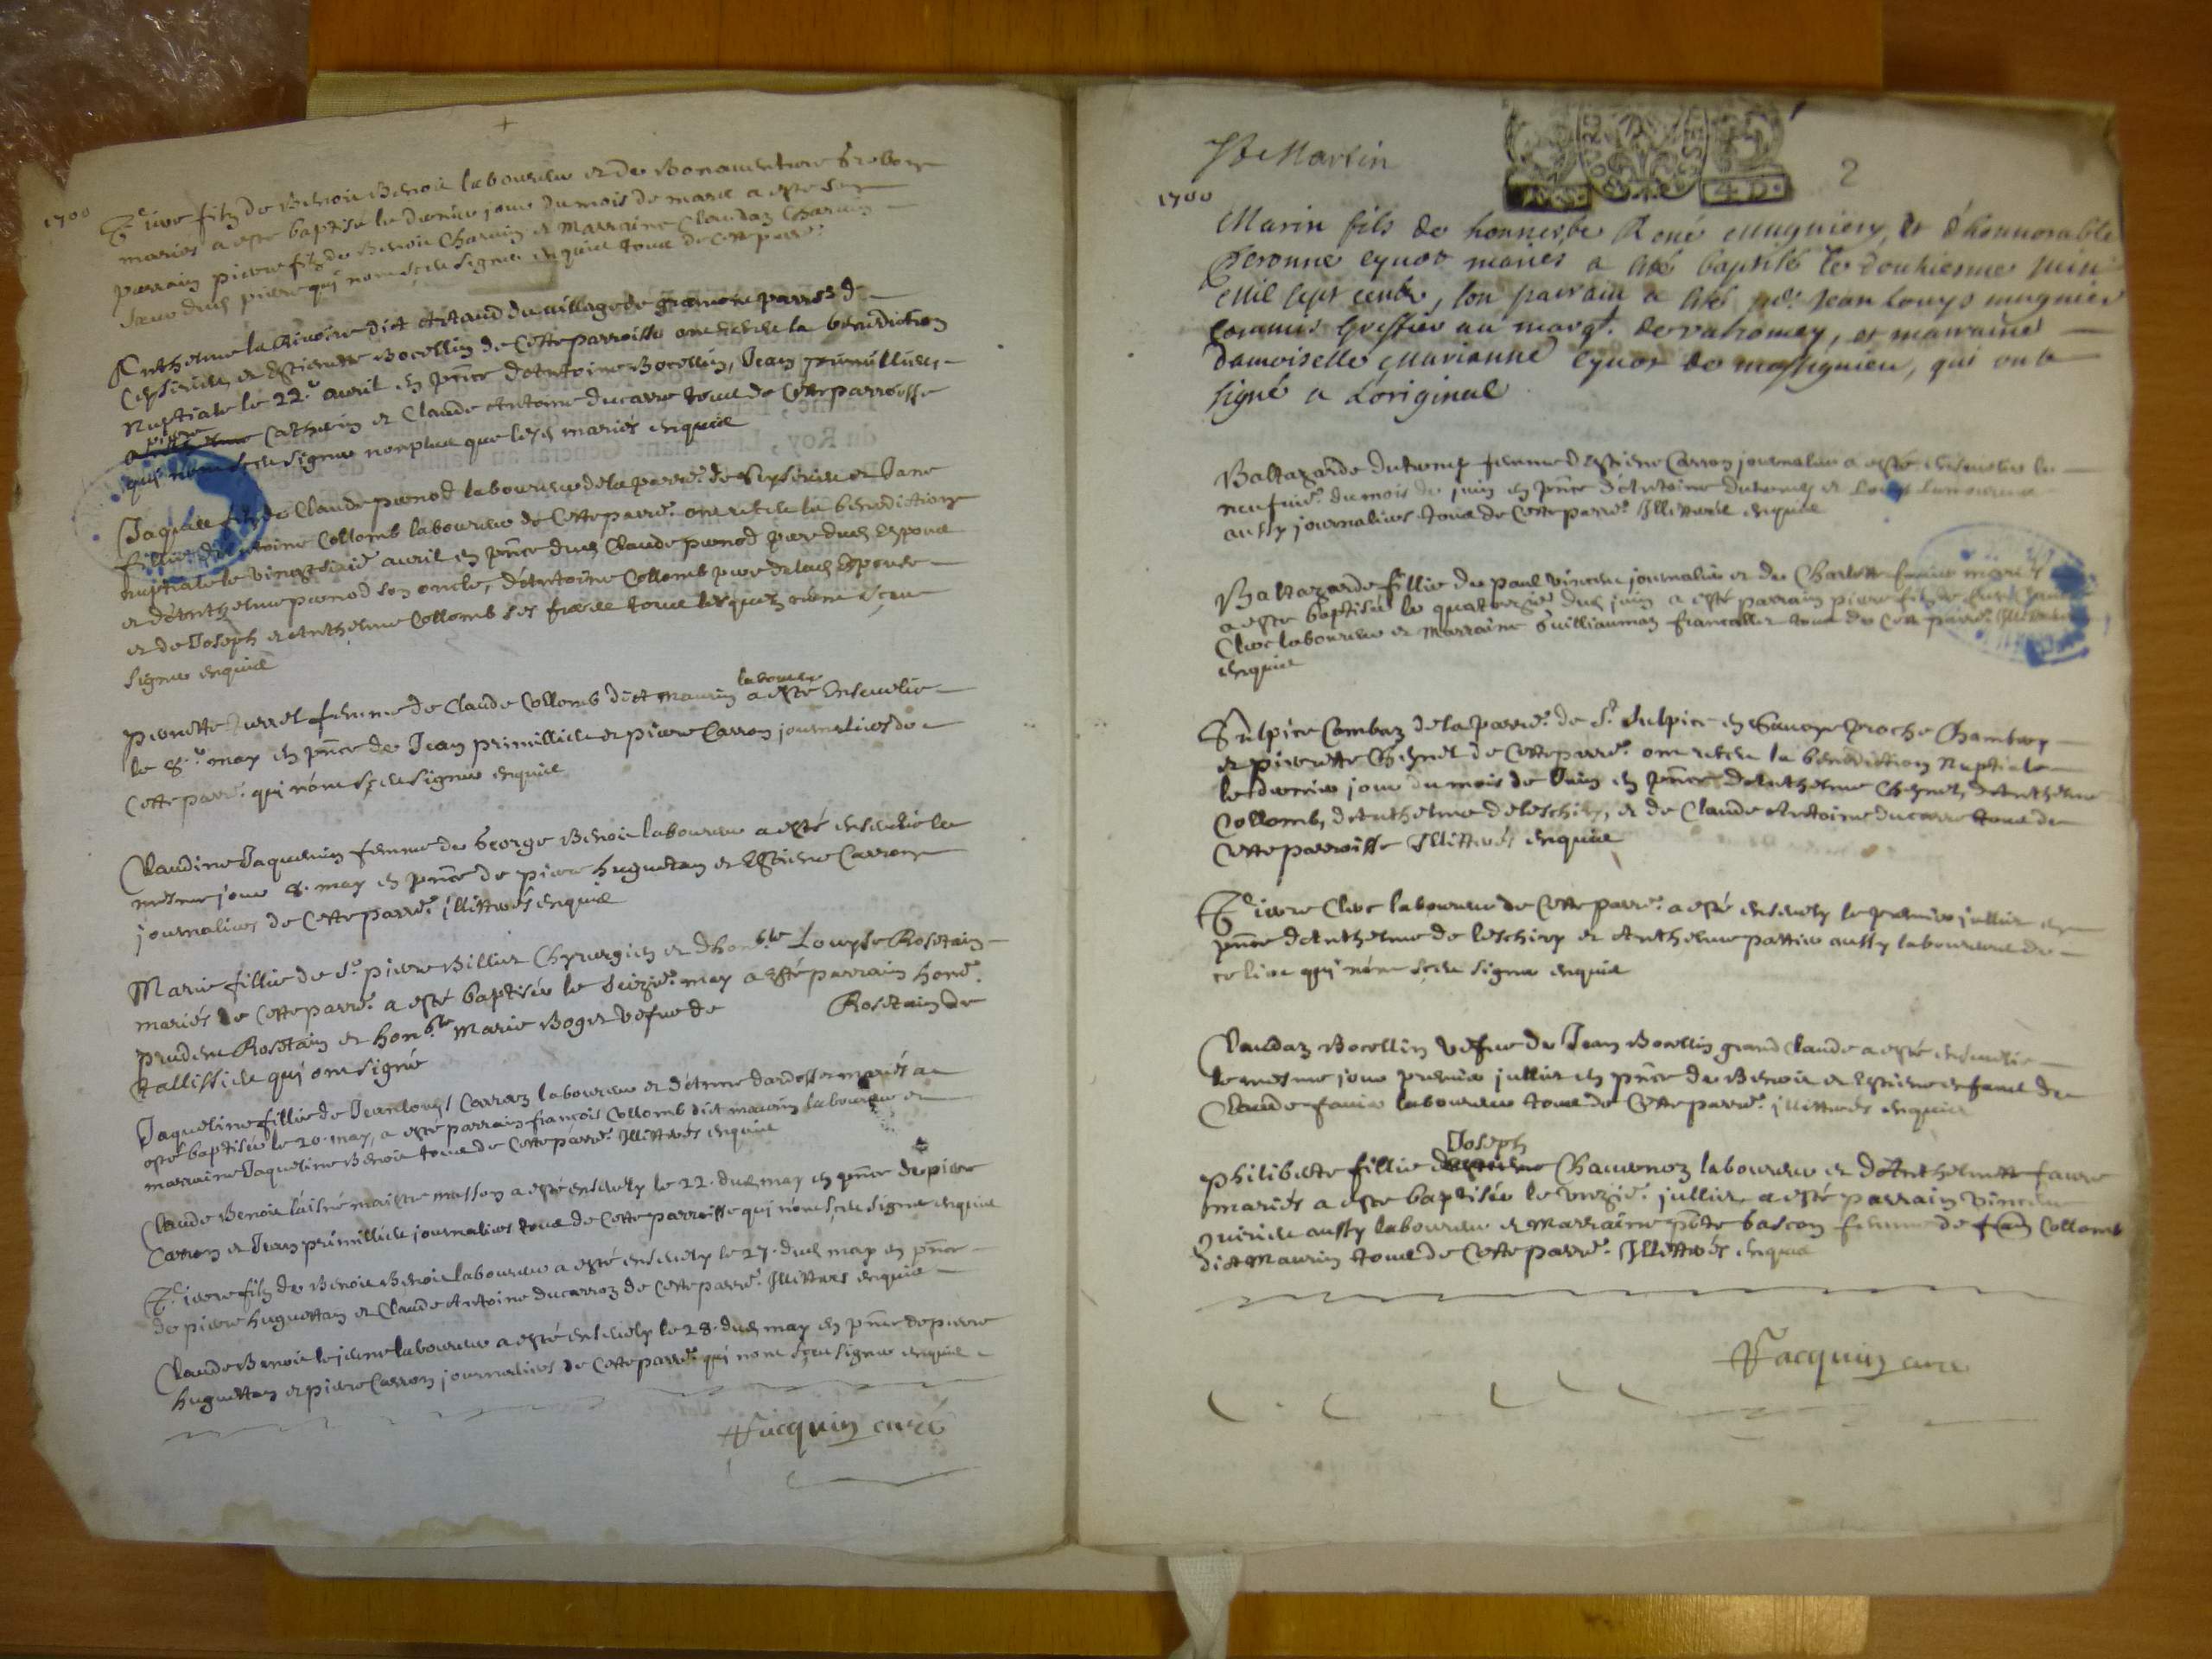 1700
Pierre filz de Benoit Benoit laboureur et de Bonaventure
mariés a esté baptisé le dernier jour du mois de mars a esté son
parrain pierre filz de Benoit Charvin et Marraine Claudaz Charvin
soeur dud. pierre qui n'ont sçeu signer enquis tous de cette parr.e
Anthelme la Rivoire dict Artaud du village de parroisse de
Ceyserieu et Estiennette Bocellin de Cette parroisse ont receu la benediction
Nuptiale le 22.e avril en pnce d'Antoine Bocellin, Jean primillieu
pierre
Catherin et Claude Antoine ducarre tous de Cette parroisse
qui n'ont sçeu signer non plus que lesd. mariés enquis
Jaques filz de Claude pernod laboureur de la parr.e de Ceyserieu et Jane
fillie d'Antoine Collomb laboureur de Cette parr.e ont receu la benediction
nuptiale le avril en pnce dud. Claude pernod pere dud. Espoux
et d'Anthelme pernod son oncle, d'Antoine Collomb pere de lad. Espouse
et de Joseph et Anthelme Collomb ses freres tous lesquelz n'ont sçeu
signer enquis
laboureur
pernette Jurrel femme de Claude Collomb dict maurin a esté Ensevelie
le 8.e may en pnce de Jean primillieu et pierre Carron journaliers de
Cette parr.e qui n'ont sçeu signer enquis
Claudine Jaquemin femme de George Benoit laboureur a esté ensevelie le
mesme jour 8. may en pnce de pierre huguetan et Estiene Carron
journaliers de Cette parr.e illittrés enquis
Marie fillie de S.r pierre Billiet Chyrurgien et d'hon.ble Louyse Rosetain
mariés de Cette parr.e a esté baptisée le seizie.e may a Esté parrain hon.e
prudent Rosetain et hon.ble Marie Roget vefve de Rosetain de
tallissieu qui ont signé
Jaqueline fillie de Jean louys Carraz laboureur et d'Anne dardossen mariés a
esté baptisée le 20. may, a esté parrain françois Collomb dict maurin laboureur et
marraine Jaqueline Benoit tous de Cette parr.e Illittrés enquis
Claude Benoit l'aisné maistre masson a esté ensevely le 22. dud. may en pnce de pierre
Carron et Jean primillieu journaliers tous de Cette parroisse qui n'ont sçeu signer enquis
Pierre filz de Benoit Benoit laboureur a esté ensevely le 27. dud. may en pnce
de pierre huguettan et Claude Antoine ducarroz de Cette parr.e Illittrés enquis
Claude Benoit le jeune laboureur a esté ensevely le 28. dud. may en pnce de pierre
huguettan et pierre Carron journaliers de Cette parr.e qui n'ont sçeu signer enquis
Jacquin curé
St Martin
2
1700
Marin fils de honneste René mugniery, et d'honnorable
Peronne eynor mariés a été baptisé le douziesme juin
mil sept cents, son parrain a été Jean Louys mugnier
commis Greffier au marq.t de valromey, et marraine
Damoiselle Marianne eynor de massignieu, qui ont
signé a l'original
Baltazarde dutremp femme d'Estiene Carron journalier a esté ensevelie le
neufvie.e du mois de juin en pnce d'Antoine dutremp et Louys
aussy journaliers tous de Cette parr.e Illittrés enquis
Baltazarde fillie de paul vincent journalier et de Charlotte mariés
a esté baptisée le quatorzie.e dud. juin a esté parrain pierre filz de
Clerc laboureur et Marraine Guilliaumaz françallet tous de Cette parr.e Illittrés
enquis
Sulpice Combaz de la parr.e de S.t Sulpice en Savoye proche Chambery
et pierrette Cheynet de Cette parr.e ont receu la benediction Nuptiale
le dernier jour du mois de Juin en pnce d'Anthelme Cheynet, d'Anthelme
Collomb, d'Anthelme de leschiry, et de Claude Antoine ducarre tous de
Cette parroisse Illittrés enquis
Pierre Clerc laboureur de Cette parr.e a esté ensevely le premier juillet en
pnce d'Anthelme de leschiry et Anthelme pattier aussy laboureurs de
ce lieu qui n'ont sçeu signer enquis
Claudaz Bocellin vefve de Jean Bocellin grand Claude a esté ensevelie
le mesme jour premier juillet en pnce de Benoit et Estiene enfans de
Claude favier laboureur tous de Cette parr.e illittrés enquis
Joseph
philiberte fillie Chavenoz laboureur et d'Anthelmette favre
mariés a esté baptisée le unzie.e juillet a esté parrain vincent
aussy laboureur et Marraine gascon femme de Collomb
dict Maurin tous de Cette parr.e Illittrés enquis
Jacquin curé